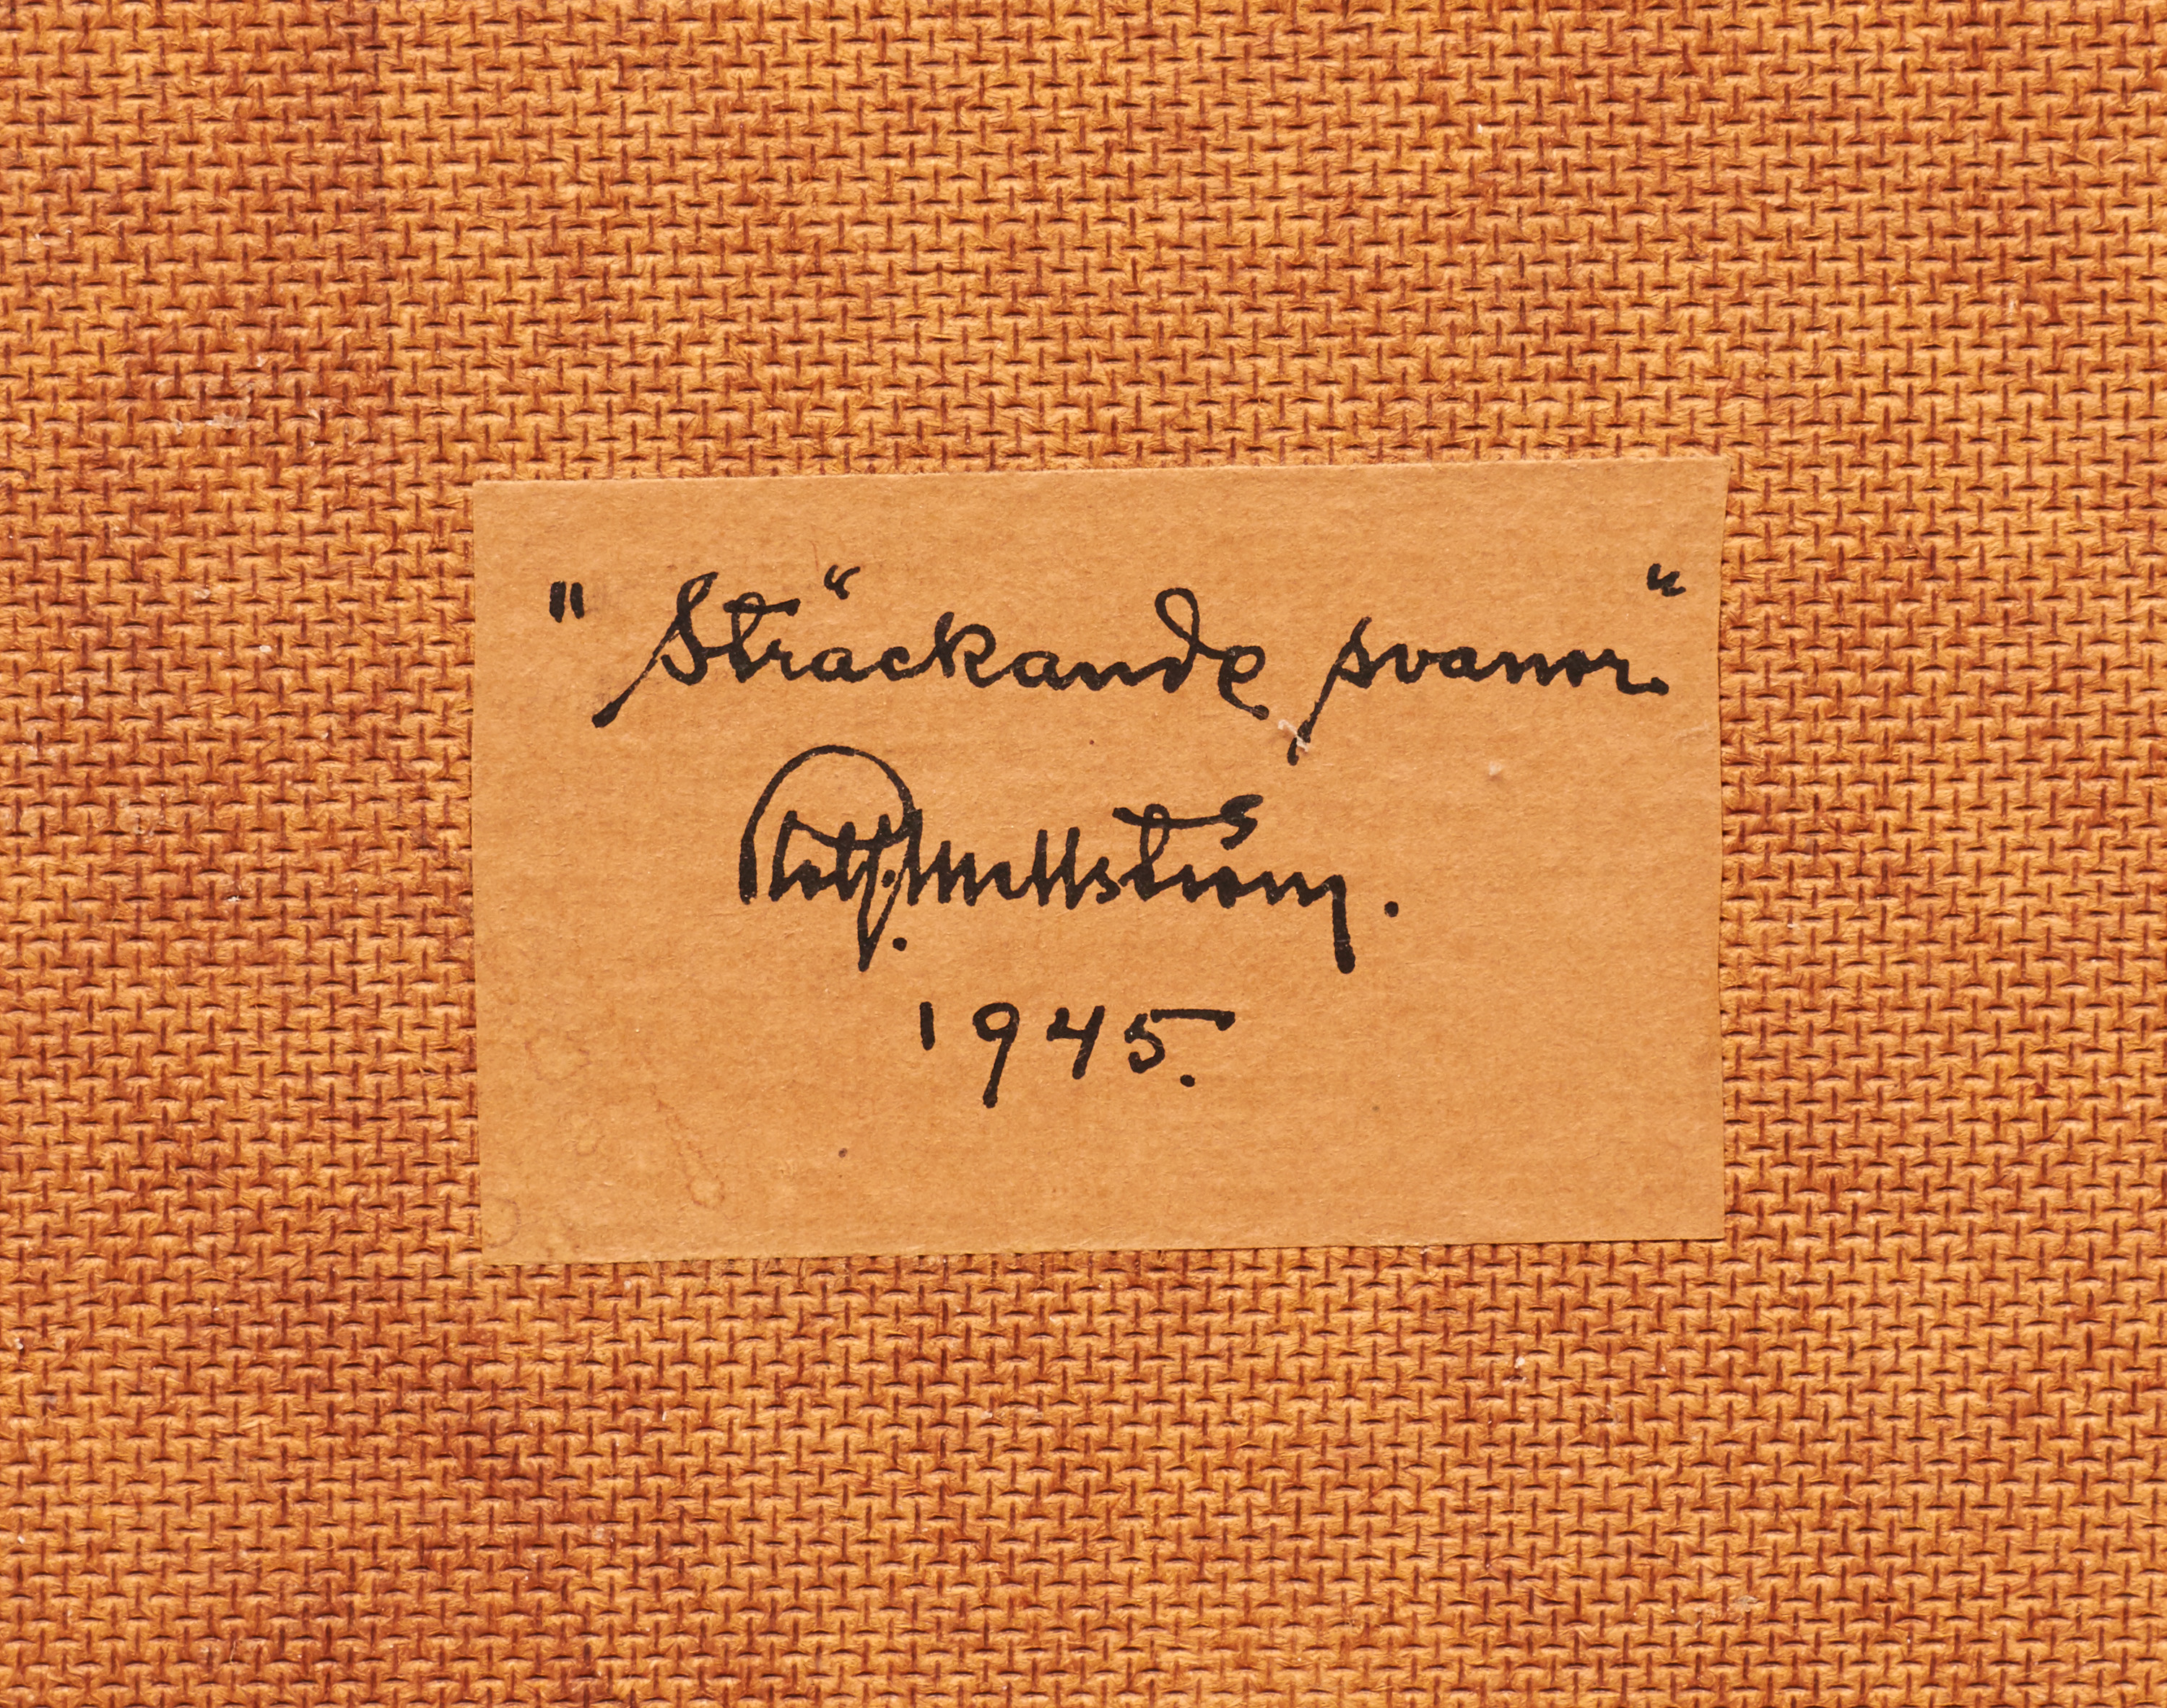 "Sträckande svanor."
Rolf. Mellström.
1945.